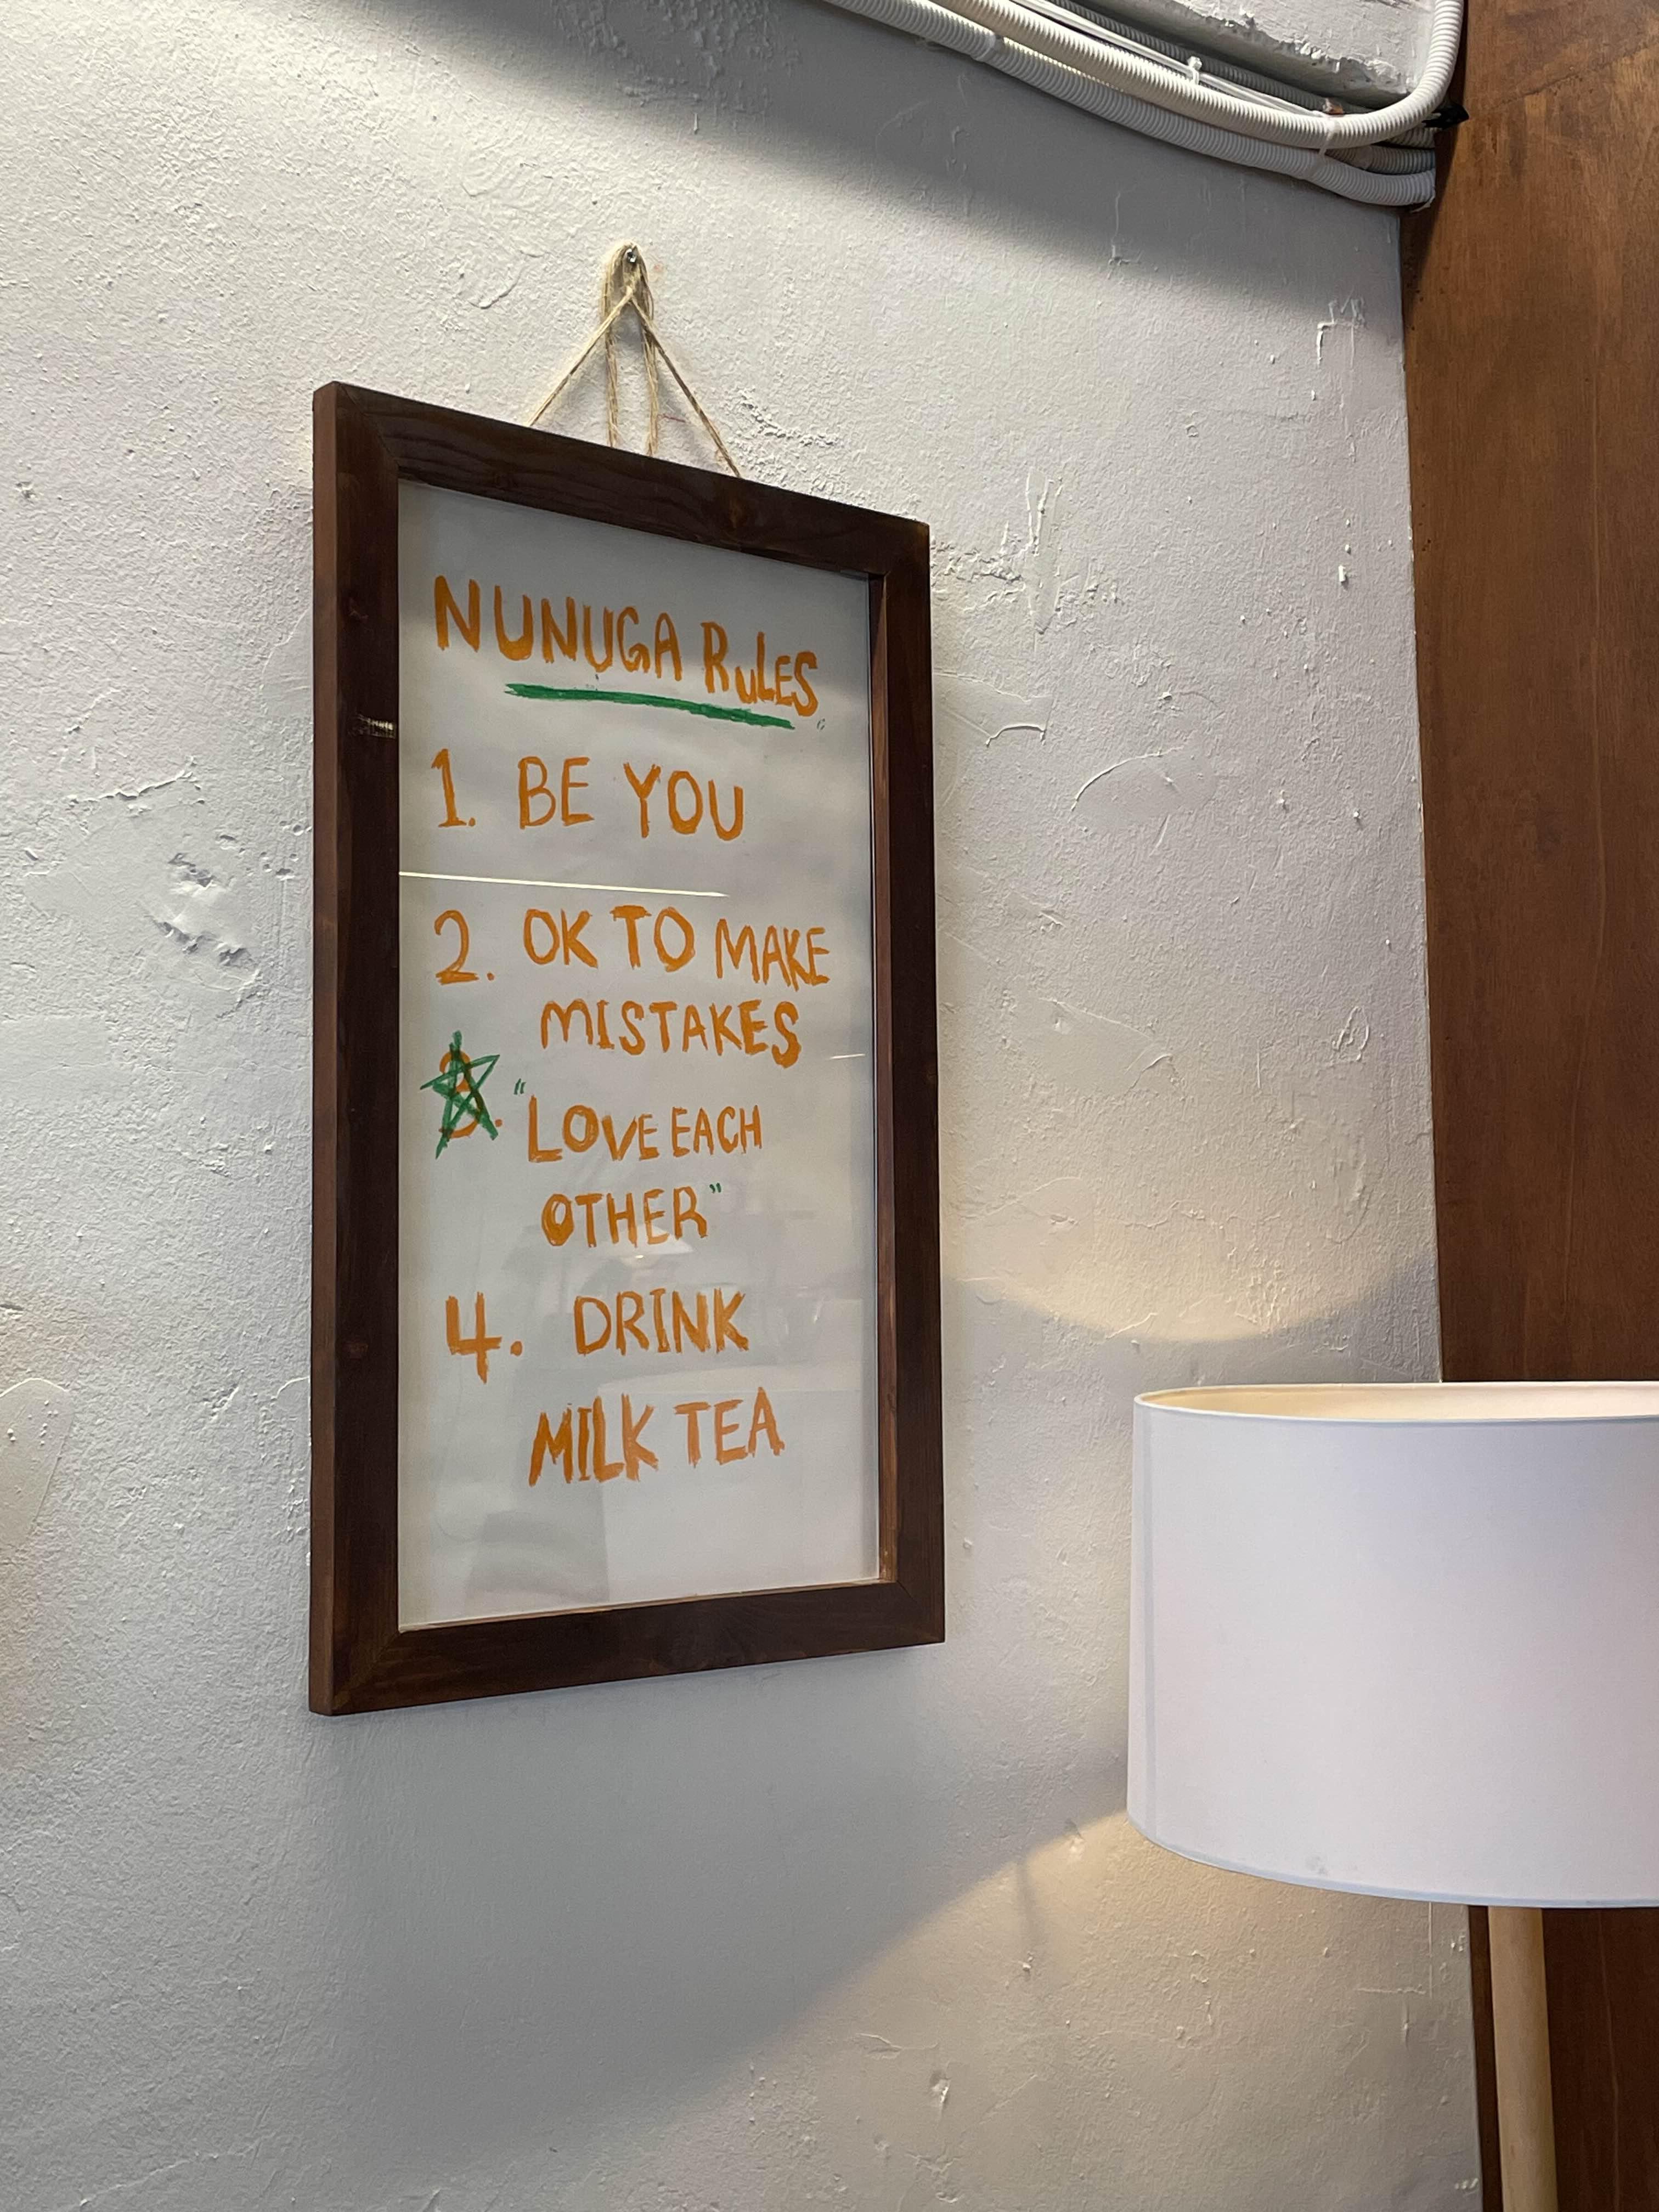 NUNUGA RULES
1. BE YOU
2. OK TO MAKE
MISTAKES
3. "LOVE EACH
OTHER"
4. DRINK
MILK TEA